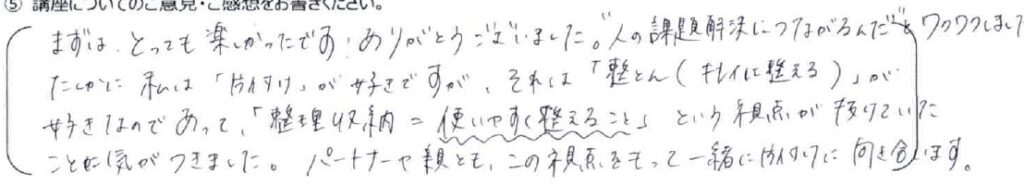 ⑤ 講座についてのご意見・ご感想をお書きください。
まずは、とっても楽しかったです！ありがとうございました。"人の課題解決につながるんだ"とワクワクしまし
たしかに私は「片付け」が好きですが、それは「整とん（キレイに整える）」が
好きなのであって、「整理収納＝使いやすく整えること」という視点が抜けていた
ことに気がつきました。パートナーや親とも、この視点をもって一緒に片付けに向き合います。